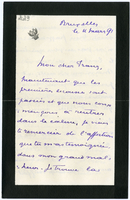 Bruxelles
le 11 mars 91
Mon cher Franz,
Maintenant que les
premières
passés et que nous
à rentrer
dans le calme, je viens
te remercier de l'affection
que tu m'as témoignée
dans mon grand mal-
heur. Je trouve